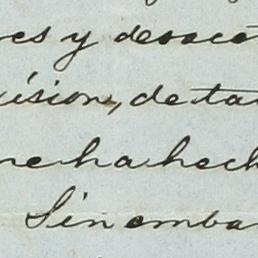 es y desacat
isión, de ta
me ha hech
Sin emba